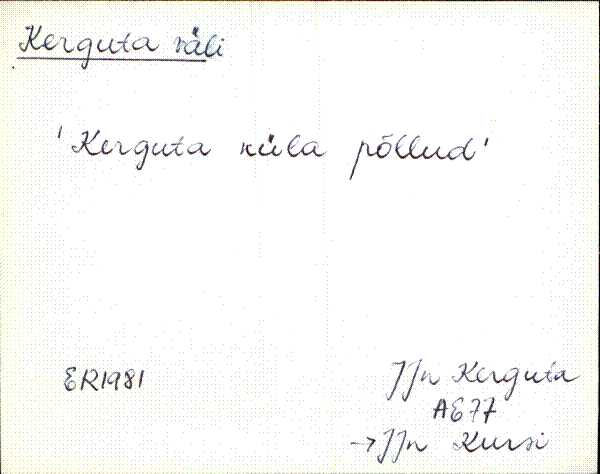 Kerguta väli
'Kerguta küla põllud'
ER1981
JJn Kerguta
AE77
→JJn Kursi